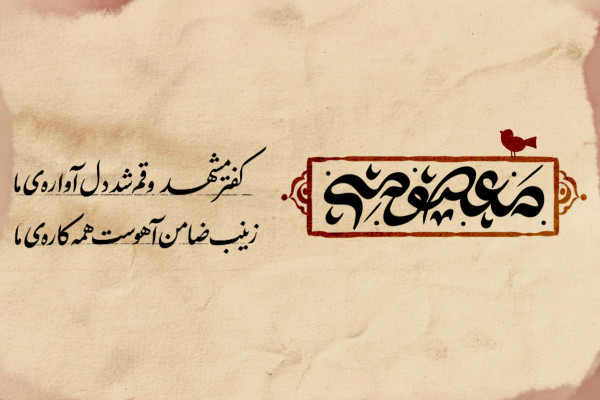 معصومه
کفتر مشهد و قم شد دل آواره‌ی ما
زینب ضامن آهوست همه کاره‌ی ما